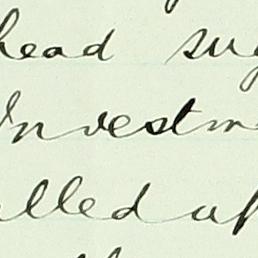 head sug
Investm
lled af